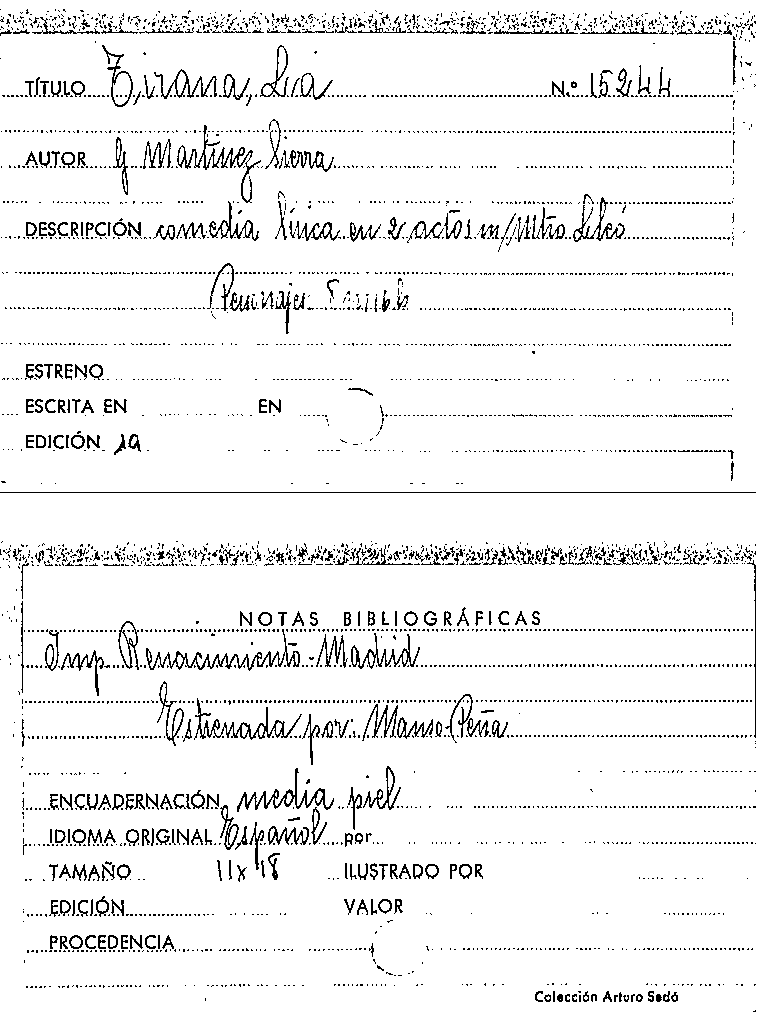 TÍTULO Tirana, La N.º 15244
AUTOR G Martinez Sierra
DESCRIPCIÓN comedia lírica en 2 actos m/Mtro Lleó
Personajes:
ESTRENO
ESCRITA EN EN
EDICIÓN 1a
NOTAS BIBLIOGRÁFICAS
Imp Renacimiento - Madrid
Estrenada por: Manso-Peña
ENCUADERNACIÓN media piel
IDIOMA ORIGINAL Español por
TAMAÑO 11x18 ILUSTRADO POR
EDICIÓN VALOR
PROCEDENCIA
Colección Arturo Sedó